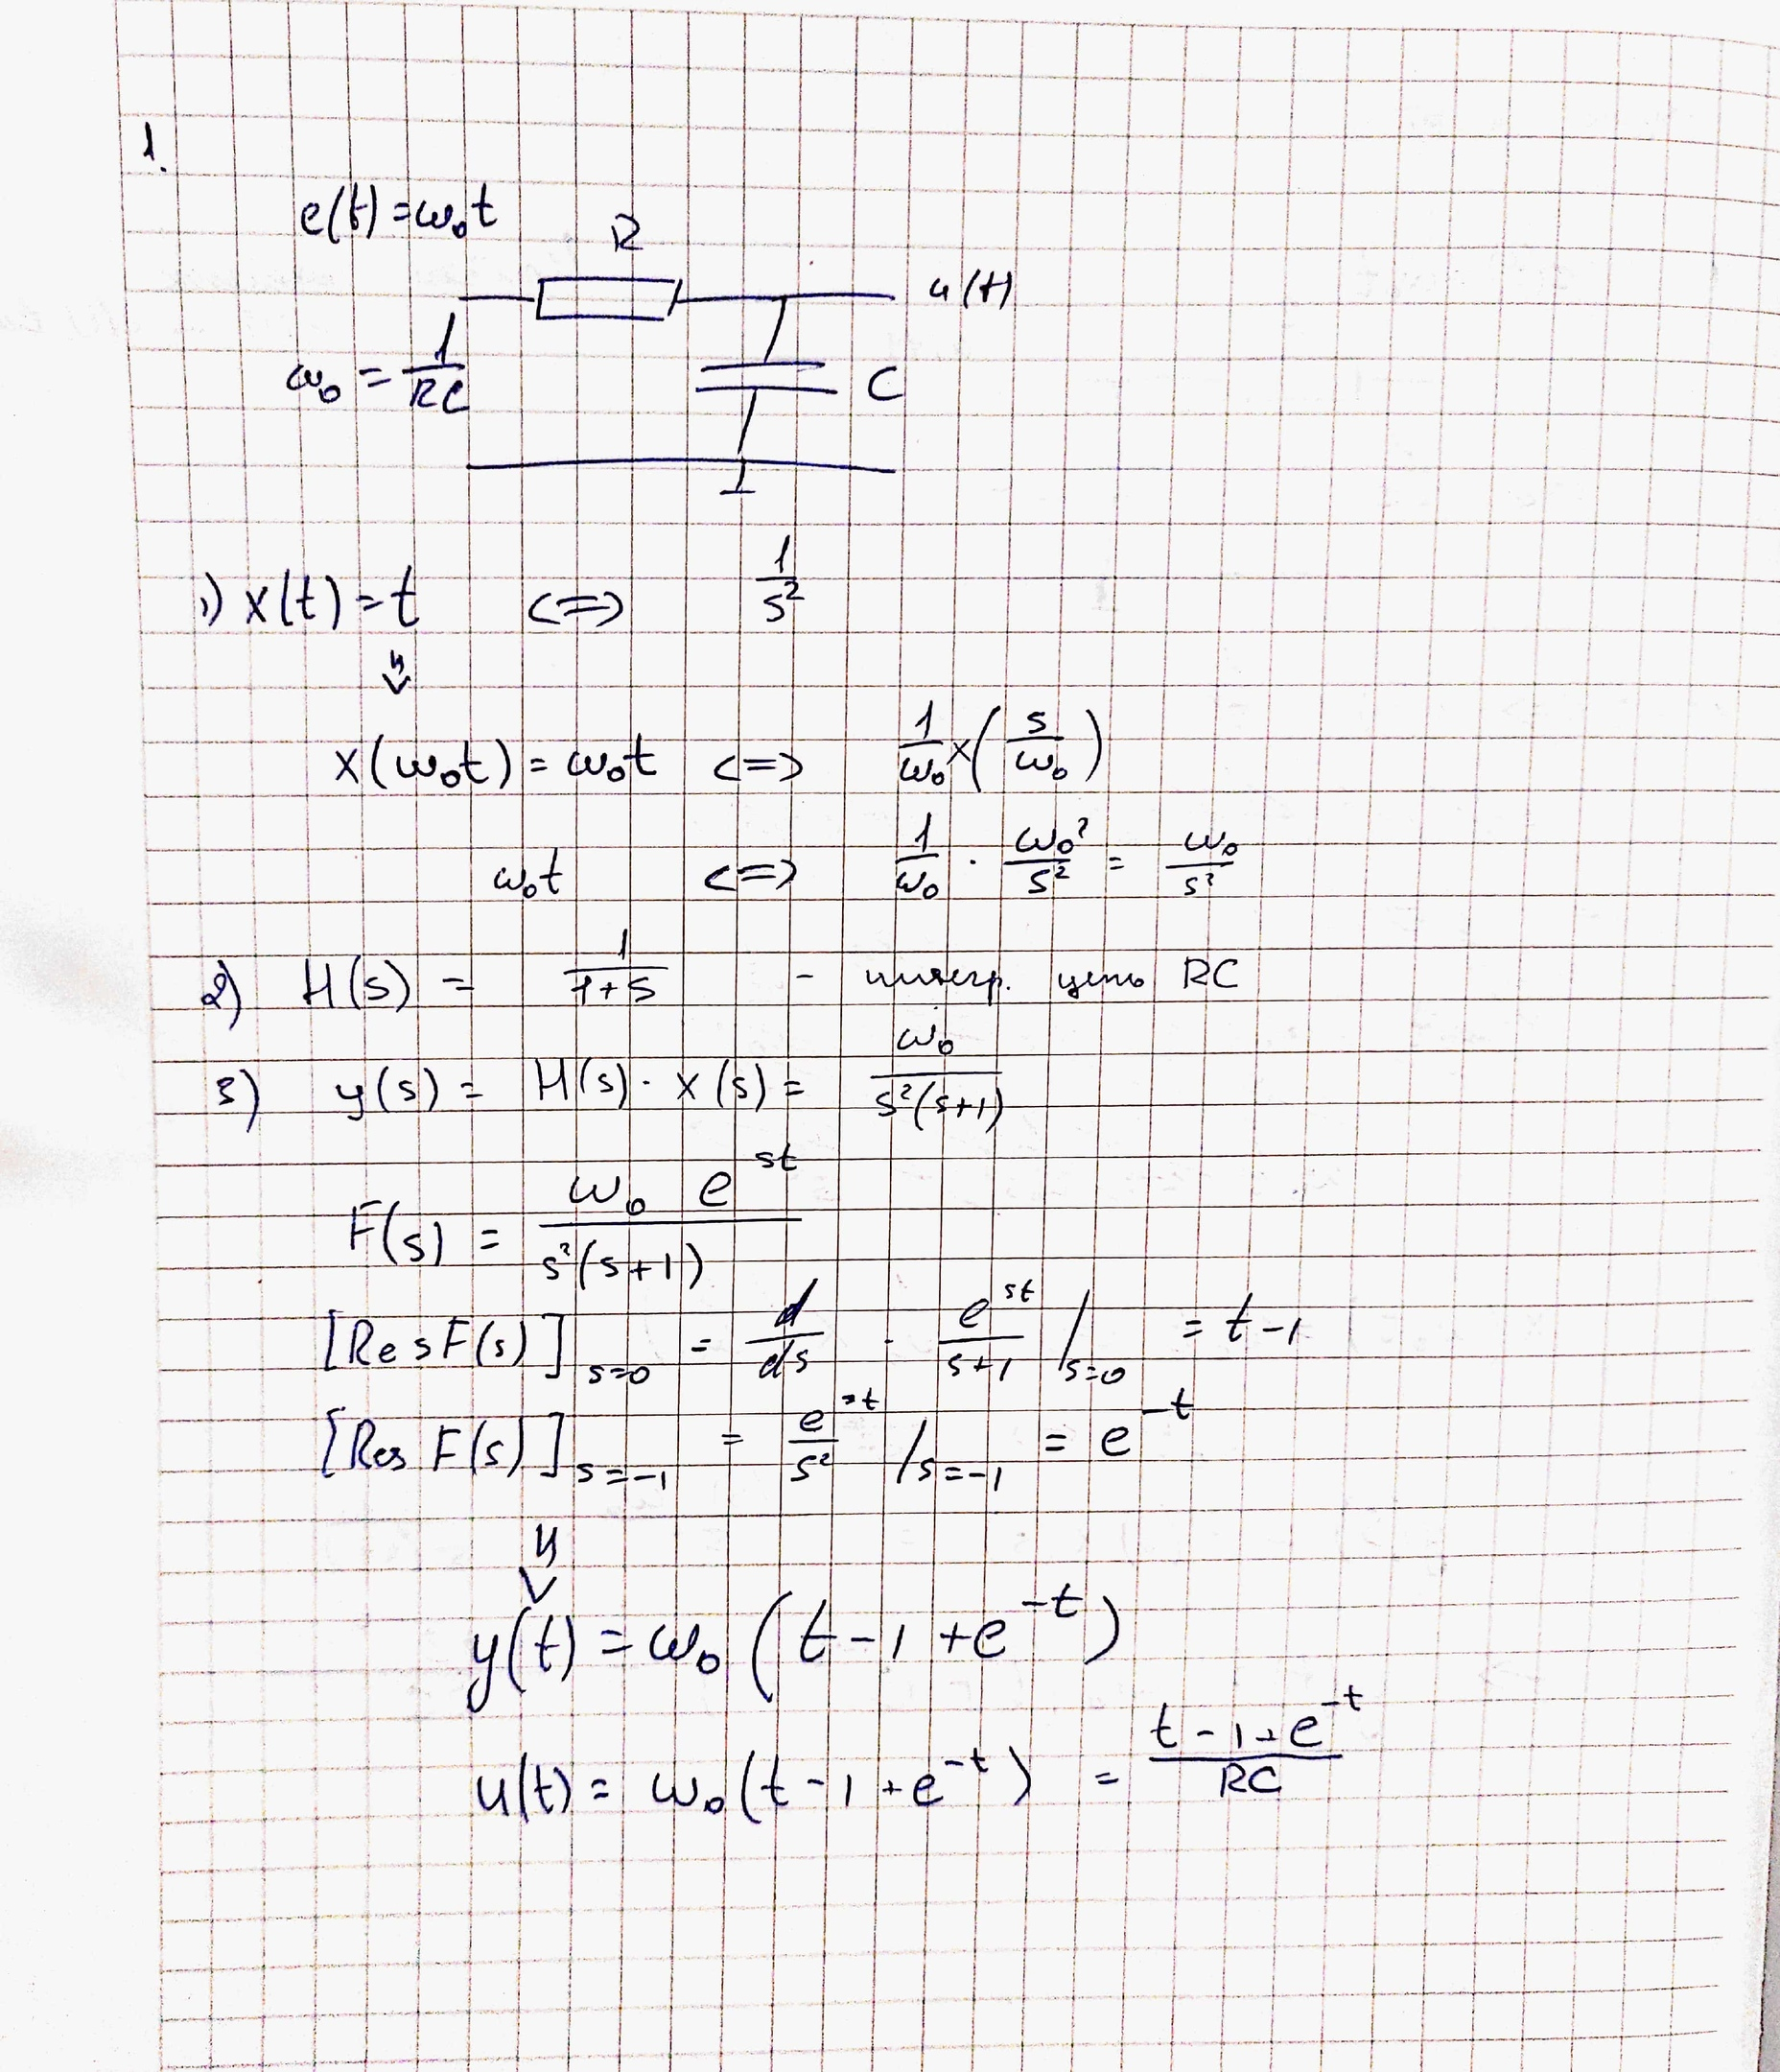 1.
e(t) = ω₀t
R
u(t)
ω₀ = 1/RC
C
1) x(t) = t <=> 1/s²
x(ω₀t) = ω₀t <=> 1/ω₀ x(s/ω₀)
ω₀t <=> 1/ω₀ · ω₀²/s² = ω₀/s²
2) H(s) = 1/(1+s) - интегр. цепь RC
3) y(s) = H(s) · x(s) = ω₀/(s²(s+1))
F(s) = ω₀ e^(st)/(s²(s+1))
[Res F(s)] s=0 = d/ds · e^(st)/(s+1) /s=0 = t-1
[Res F(s)] s=-1 = e^(st)/s² /s=-1 = e^(-t)
y(t) = ω₀ (t - 1 + e^(-t))
u(t) = ω₀ (t - 1 + e^(-t)) = (t - 1 + e^(-t))/RC